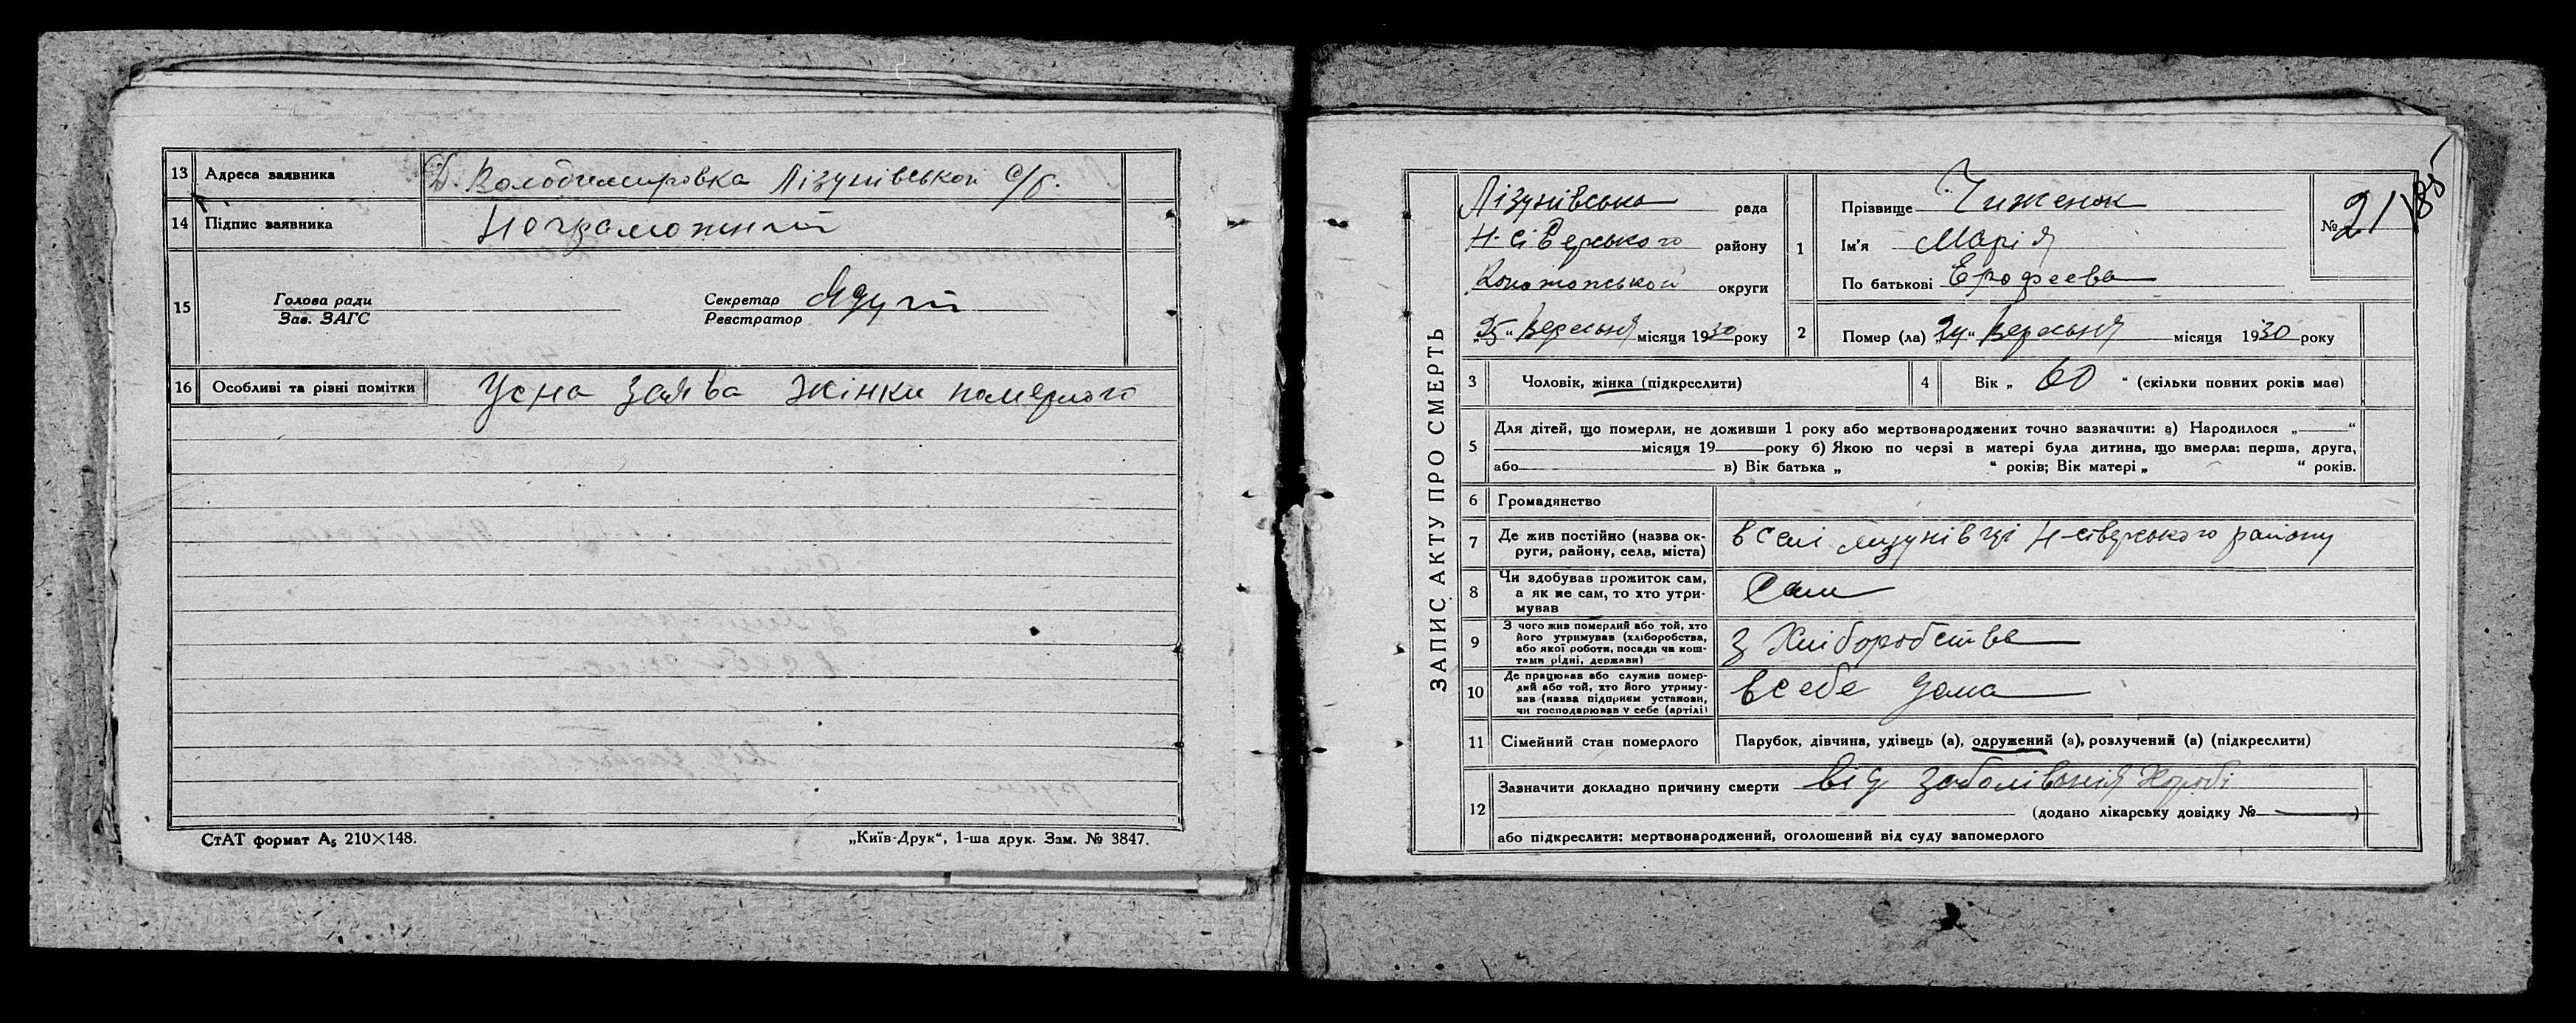 13 Адреса заявника Д. Володимировка Лізунівськои с/р.
14 Підпис заявника Неграмотний
15 Голова ради
Зав. ЗАГС
Секретар
Реєстратор
16 Особливі та різні помітки Усна заява жінки померлого
СтАТ формат А₅ 210×148.
„Київ-Друк“, 1-ша друк. Зам. № 3847.
185
ЗАПИС АКТУ ПРО СМЕРТЬ
Лізунівська рада
Н-Сіверського району
Конотопськои округи
„25“ Вересьня місяця 1930 року
1 Прізвище Чиженок
Ім'я Марія
По батькові Ерофеева
№ 21
2 Помер (ла) „24“ Вересьня місяця 1930 року
3 Чоловік, жінка (підкреслити)
4 Вік „ 60 “ (скільки повних років мав)
5 Для дітей, що померли, не доживши 1 року або мертвонароджених точно зазначити: а) Народилося „ “
місяця 19 року б) Якою по черзі в матері була дитина, що вмерла: перша, друга,
або в) Вік батька „ “ років; Вік матері „ “ років.
6 Громадянство
7 Де жив постійно (назва ок-
руги, району, села, міста) в селі лізунівці Н-сіверського району
8 Чи здобував прожиток сам,
а як не сам, то хто утри-
мував Сам
9 З чого жив померлий або той, хто
його утримував (хліборобства,
або якої роботи, посади чи кош-
тами рідні, держави) з Хліборобства
10 Де працював або служив помер-
лий або той, хто його утриму-
вав (назва підприєм. установи,
чи господарював у себе (артілі) в себе дома
11 Сімейний стан померлого Парубок, дівчина, удівець (а), одружений (а), розлучений (а) (підкреслити)
12 Зазначити докладно причину смерти від заболіваня Хоробі
(додано лікарську довідку № )
або підкреслити: мертвонароджений, оголошений від суду запомерлого